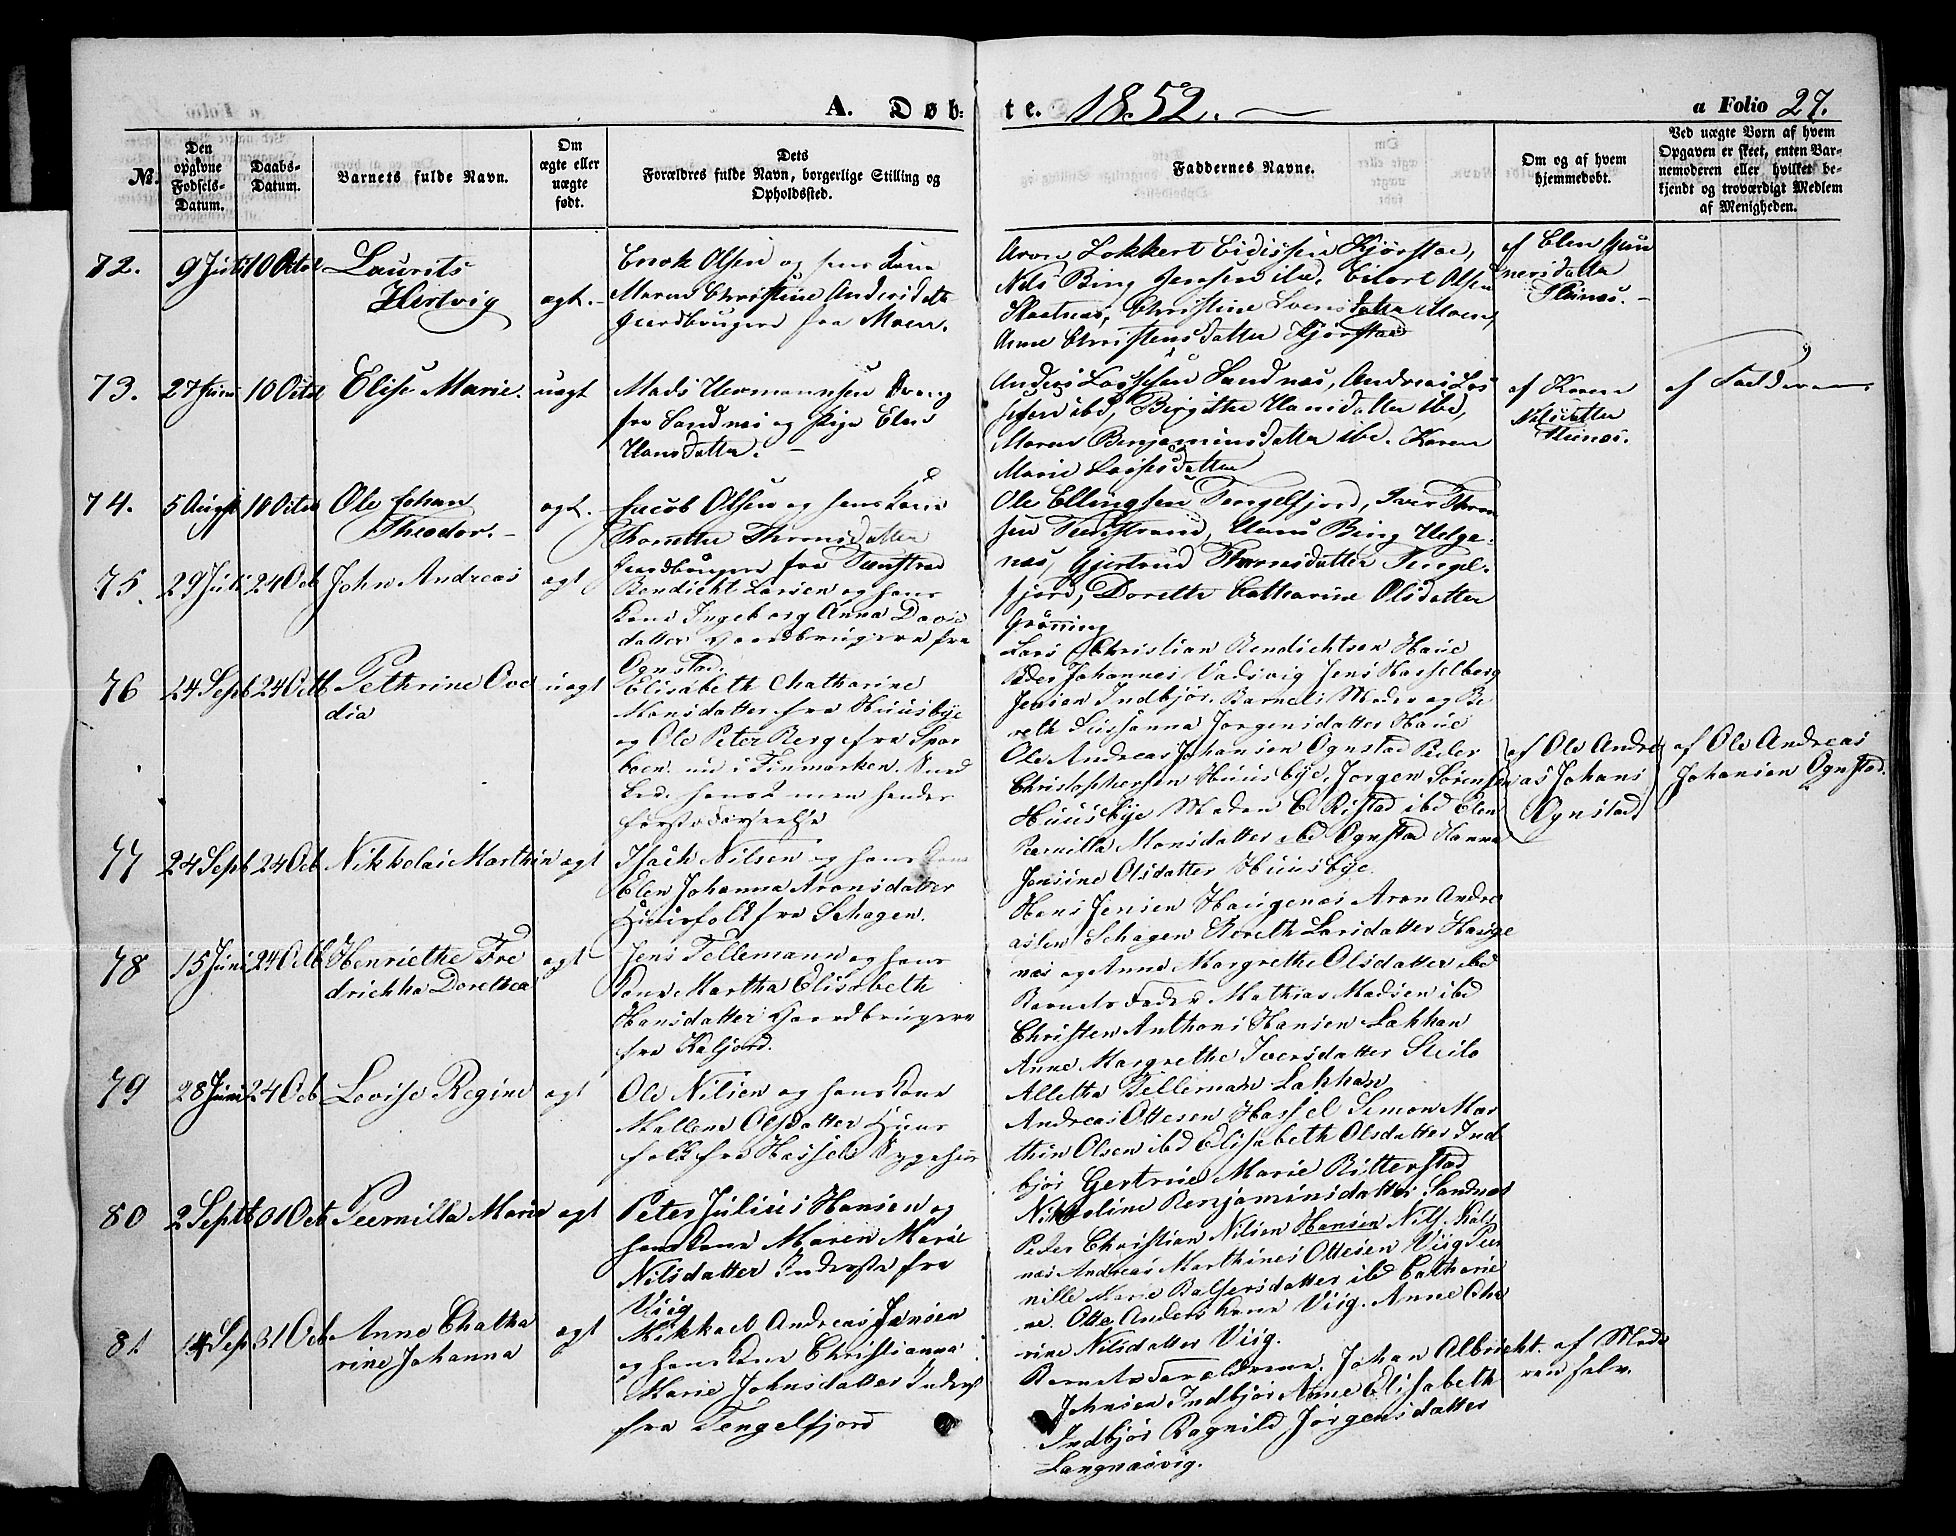 A. Døb-
te. 1852.
a Folio 27.
No.
Den opgivne Fødsels-Datum.
Daabs-Datum.
Barnets fulde Navn.
Om ægte eller uægte født.
Dets Forældres fulde Navn, borgerlige Stilling og Opholdssted.
Faddernes Navne.
Om og af hvem hjemmedøbt.
Ved uægte Børn af hvem
Opgaven er skeet, enten Bar-
nemoderen eller hvilket be-
kjendt og troværdigt Medlem
af Menigheden.
72. 9 Juli 10 Octob Laurits
Hertvig
ægt.
Enok Olsen og hans Kone
Maren Christine Andersdatter
Gaardbrugere fra Moen.
Aron Lokkert Eidissen Kjørstad,
Nels Bing Jensen ibd. Eilert Olsen
Skatnes, Christine Svensdatter Moen,
Anne Christensdatter Kjørstad
af Elen Gun
nersdatter
Steines.
73. 27 Juni 10 Octob Elise Marie.
uægt
Mads Hermannsen Dreng
fra Sandnes og Pige Elen
Hansdatter.
Anders Lassesen Sandnes, Andreas Las
sesen ibd, Birgitte Hansdatter ibd,
Maren Benjaminsdatter ibd. Karen
Marie Lassesdatter
af Karen
Nelsdatter
Steines.
af Fadderne
74. 5 Augst 10 Octob Ole Johan
Theodor.
ægt.
Jacob Olsen og hans Kone
Thomette Thronsdatter
Gaardbrugere fra Tunstrad
Ole Ellingsen Tengelfjord, Iver Thron
sen Tunstrand, Hans Bing Helge-
nes, Gjertrud Thronsdatter Tengel-
fjord, Dorette Catharine Olsdatter
Grønning
75. 29 Juli 24 Oct John Andreas
ægt
Bendicht Larsen og hans
Kone Ingeborg Anna Davids
datter Gaardbrugere fra
Ognstad.
Lars Christian Bendichtsen Haue
Peder Johannes Vadsvig Jens Hasselberg
Jensen Indbjør. Barnets Moder og Be
reth Sussanna Jørgensdatter Haue
76 24 Sept 24 Octb Pethrine Ove
dia
uægt
Elisabeth Chatharine
Monsdatter fra Huusbye
og Ole Peter Berge fra Spar
boen nu i Finmarken.
hans 2 men hendes
første Forseelse
Ole Andreas Johansen Ognstad Peder
Christophersen Huusbye, Jørgen Sørensen
Huusbye Maden C Ristad ibd Elen
Pernilla Monsdatter ibd Ognstad Hanna
Jensine Olsdatter Huusbye.
af Ole Andre
as Johans
Ognstad
af Ole Andreas
Johansen Ognstad.
77 24 Sept 24 Oct Nikkolai Marthin ægt
Isach Nilsen og hans Kone
Elen Johanna Aronsdatter
Huusfolk fra Schagen.
Hans Jensen Haugenes Aron Andre
asen Schagen Bereth Larsdatter Hauge
nes og Anne Margrethe Olsdatter ibd
78 15 Juni 24 Octb Henriethe Fre
drichha Dorethea
ægt
Jens Tellemann og hans
Kone Martha Elisabeth
Hansdatter Gaardbrugere
fra Kaljord.
Barnets Fader Mathias Madsen ibd
Christen Anthoni Hansen Lakhan
Anne Margrethe Iversdatter Steilo
Alletha Telleman Lakhan
79 28 Juni 24 Oct Lovise Regine ægt
Ole Nilsen og hans Kone
Mallene Olsdatter Huus
folk fra Hassel
Andreas Ottesen Hassel Simon Mar
thin Olsen ibd Elisabeth Olsdatter Ind
bjør Gertrue Marie Ritterstad
Nikoline Benjaminsdatter Sandnes
80 2 Septb 31 Oct Peernilla Marie ægt
Peter Julius Hansen og
hans Kone Maren Marie
Nilsdatter Inderste fra
Viig
Peder Christian Nilsen Hansen
nes Andreas Marthines Ottesen Viig Peer
nille Marie Balsersdatter ibd Catharie
ne Otte Anders Kone Viig. Anne Cha
rine Nilsdatter Viig.
81 14 Sep 31 Oct Anne Chatha
rine Johanna
ægt
Mikkael Andreas Jensen
og hans Kone Christianna
Marie Johnsdatter Inderst
fra Tengelfjord
Barnets Forældrene. Johan Albricht
Johnsen Indbjør Anne Elisabeth
Indbjør Ragnild Jørgensdatter
Langnæsvig.
af Mode
ren selv.